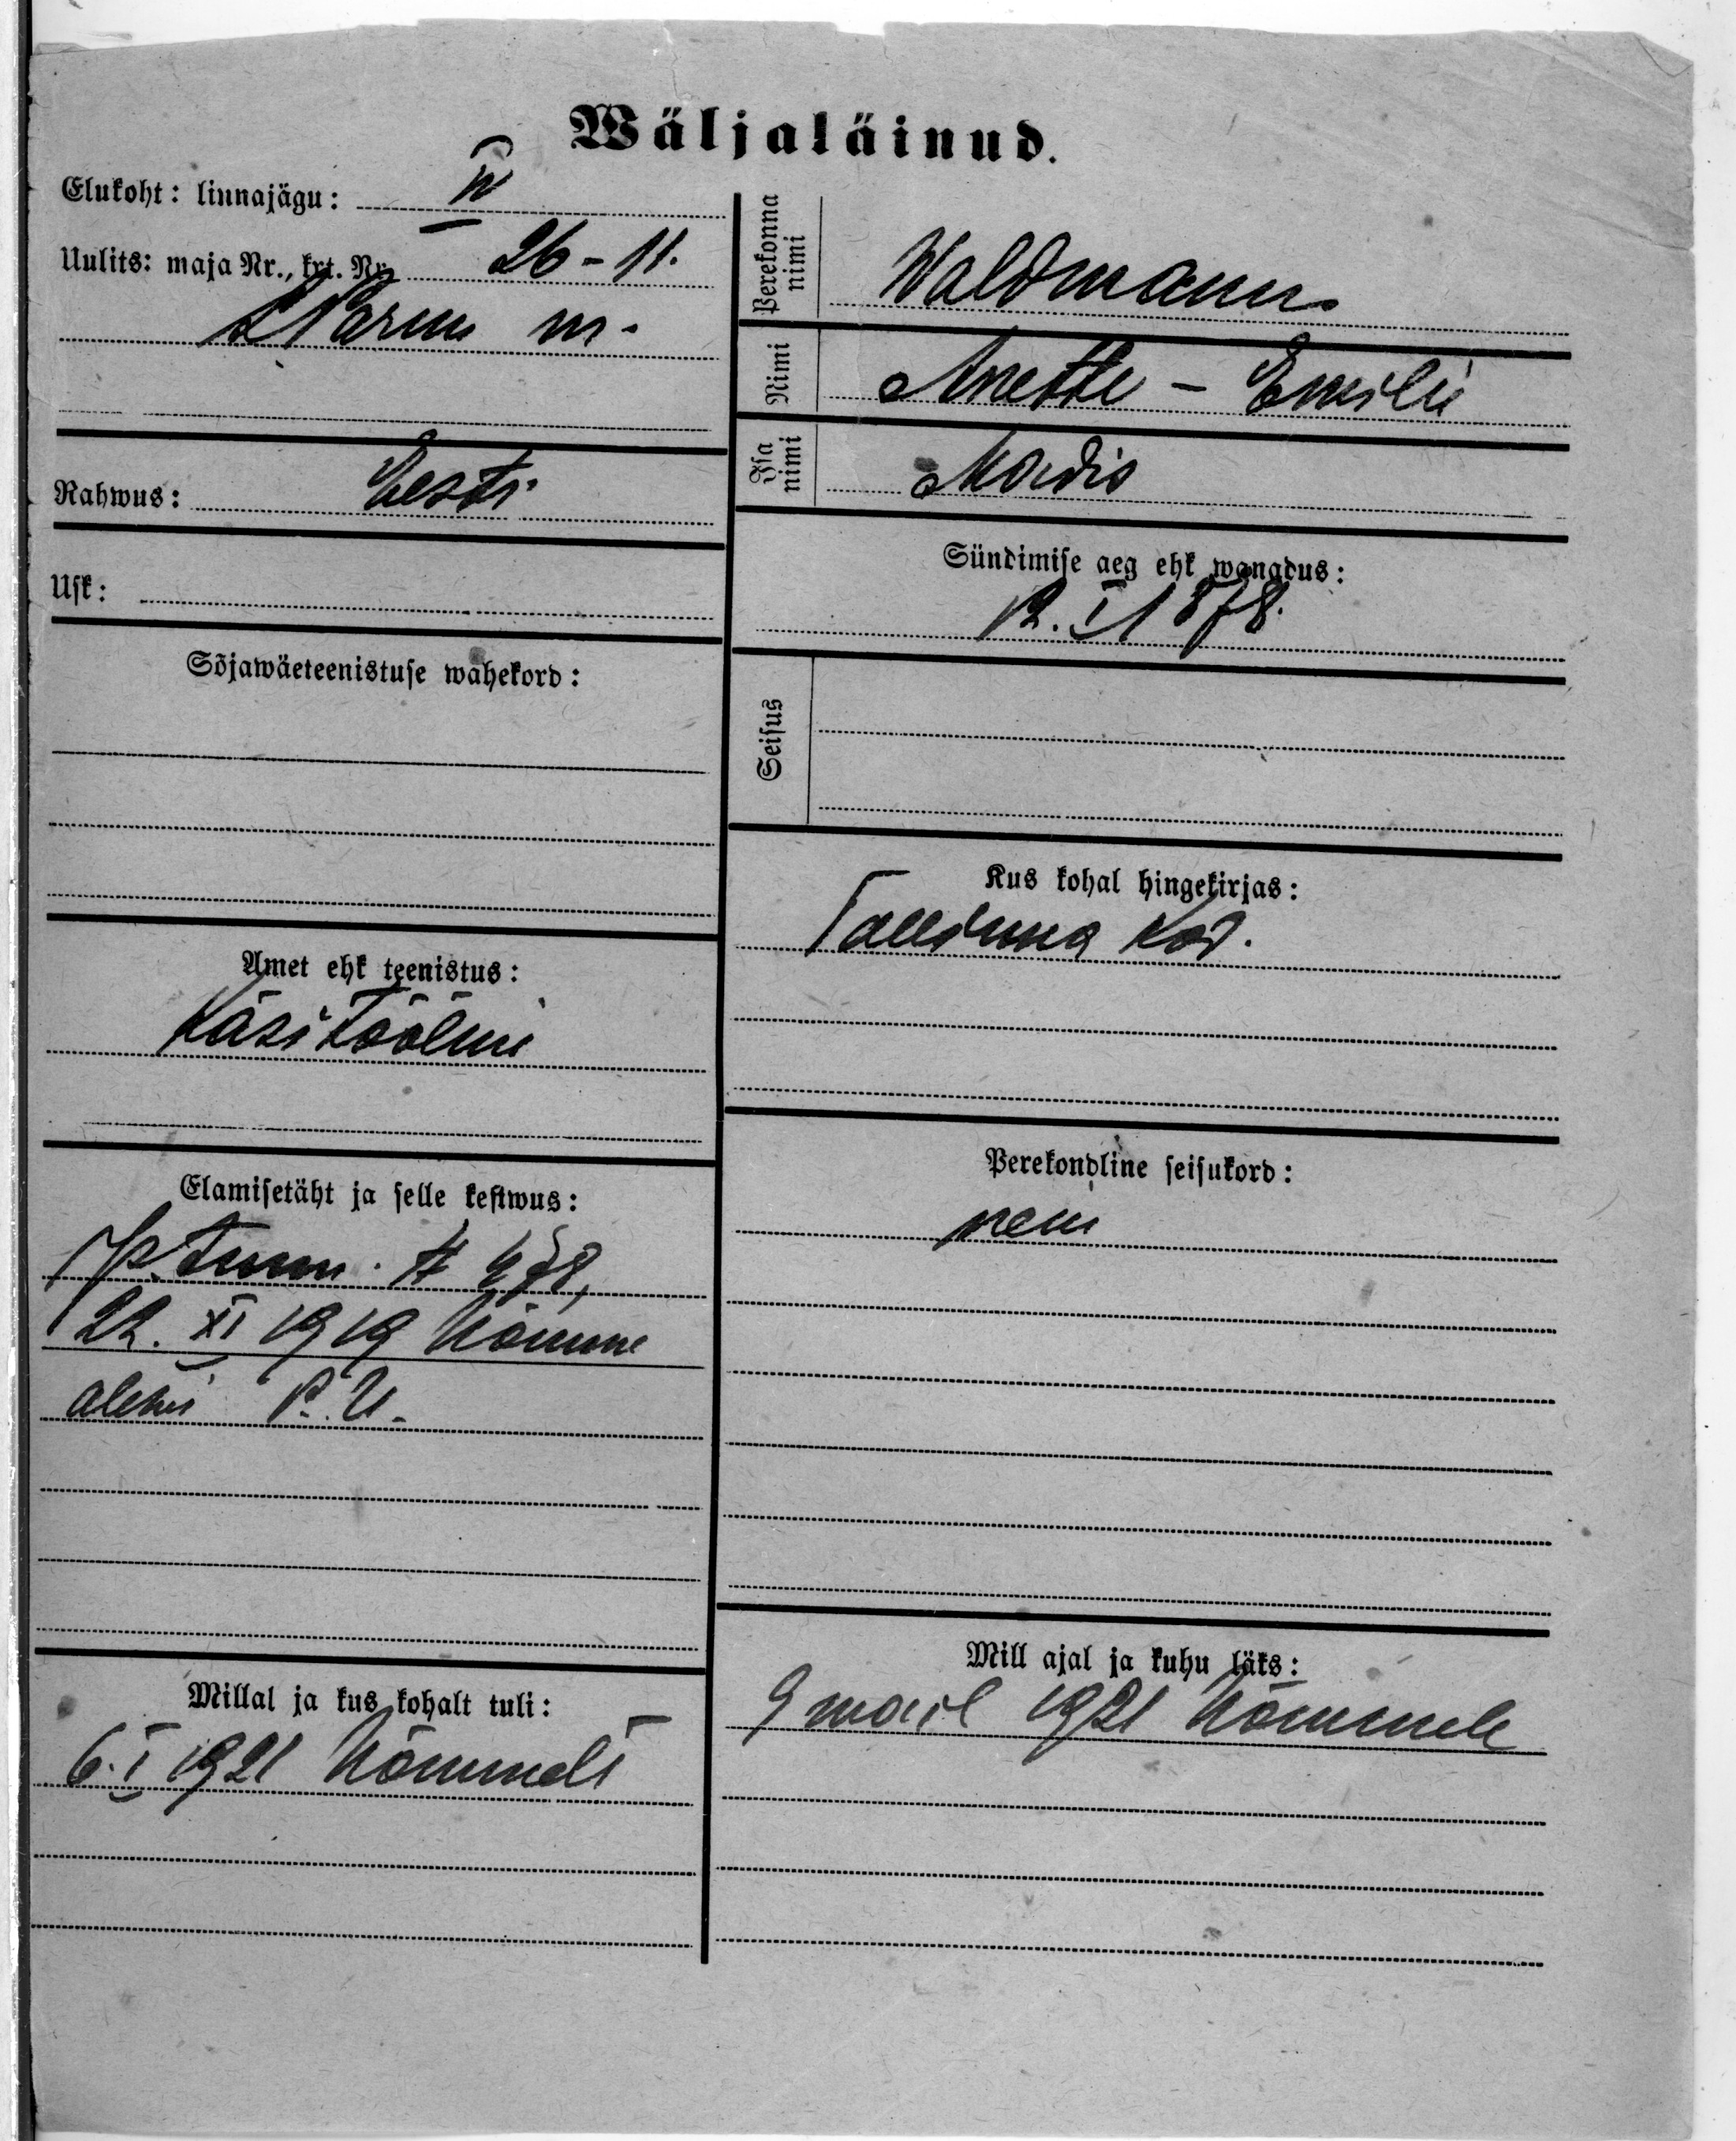 Wäljaläinud.
Elukoht: linnajagu: IV
Uulits: maja Nr., krt. Nr. 26-11.
S Pärnu m.
Rahwus: Eesti
Usk:
Sõjawäeteenistuse wahekord:
Amet ehk teenistus:
Käsitööline
Elamisetäht ja selle kestwus:
Is. tunn. # 978,
22. XI 1919 Nõmme
alewi P. U.
Millal ja kus kohalt tuli:
6. I 1921 Nõmmelt
Perekonna nimi Waldmann
Nimi Anette - Emilie
Isa nimi Madis
Sündimise aeg ehk wanadus:
12. I 1878.
Seisus
Kus kohal hingekirjas:
kod.
Perekondline seisukord:
neiu
Mill ajal ja kuhu läks:
9 mail 1921 Nõmmele